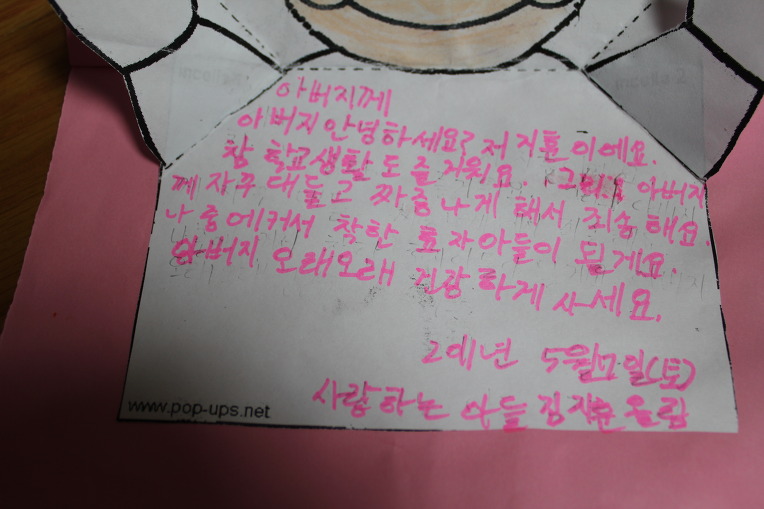 아버지께
아버지 안녕하세요? 저 지훈이에요.
참 학교생활도 즐거워요. 그리고 아버지
께 자꾸 대들고 짜증나게 해서 죄송해요.
나중에커서 착한 효자아들이 될게요.
아버지 오래오래 건강하게 사세요.
년 5월7일(토)
사랑하는 아들 김지훈 올림
www.pop-ups.net